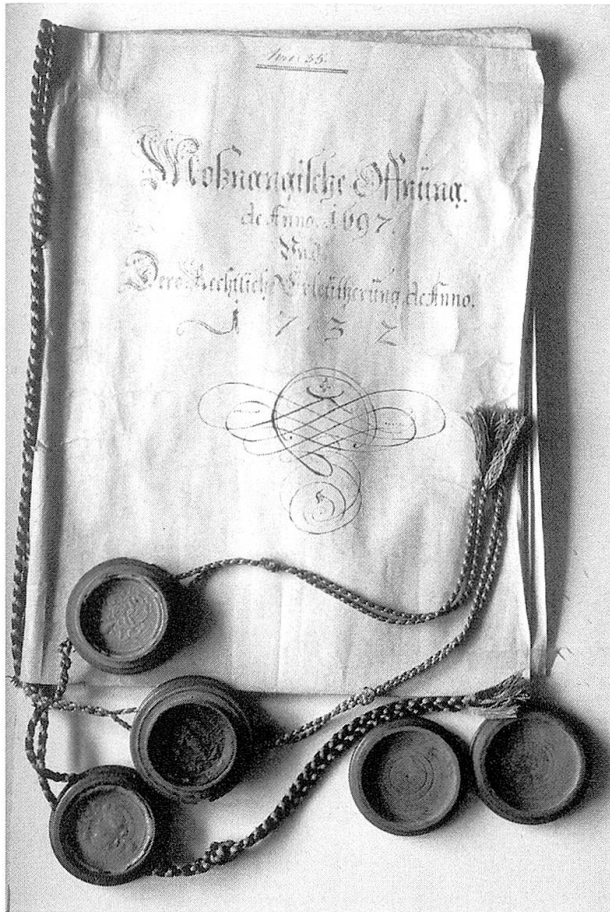 Nro: 35.
Moßnangische Offnùng.
de Anno. 1697.
Und
Dero Rechtliche Erleütherùng de Anno.
1732